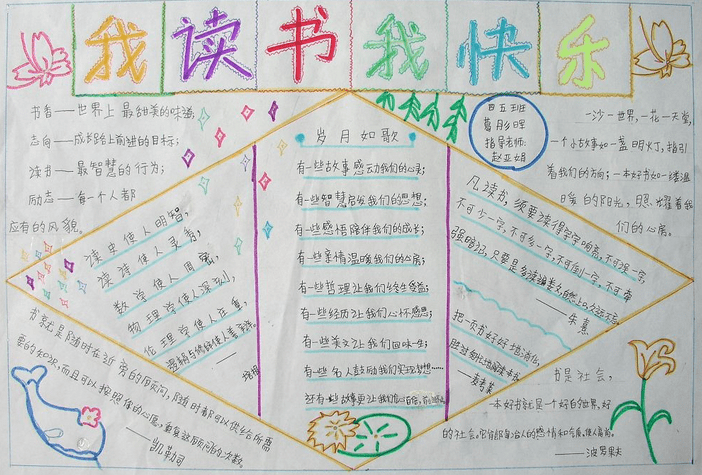 我读书我快乐
书香——世界上最甜美的味道,
志向——成长路上前进的目标;
读书——最智慧的行为;
励志——每一个人都
应有的风貌。
四五班
葛彤晖
指导老师:
赵亚娟
一沙一世界,一花一天堂,
一个小故事如一盏明灯,指引
着我们的方向;一本好书如一缕温
暖的阳光,照耀着我
们的心房。
读史使人明智,
读诗使人灵秀,
数学使人周密,
物理学使人深刻,
伦理学使人庄重,
逻辑与修辞使人善辩。
——培根
岁月如歌
有一些故事感动我们的心灵;
有一些智慧启发我们的思想;
有一些感悟陪伴我们的成长;
有一些亲情温暖我们的心房;
有一些哲理让我们终生受益;
有一些经历让我们心怀感恩;
有一些美文让我们回味一生;
有一些名人鼓励我们实现梦想……
还有一些故事更让我们
凡读书,须要读得字字响亮,不可误一字,
不可少一字,不可多一字,不可倒一字,不可牵
强暗记,只要是多诵遍数,自然上口,久远不忘。
——朱熹
把一页书好好地消化,
胜过匆忙地阅读一本书。
——麦考莱
书就是随时在近旁的顾问,随时都可以供给你所需
要的知识,而且可以按照你的心愿,重复这顾问的次数。
——凯勒司
书是社会,
一本好书就是一个好的世界,好
的社会。它能陶冶人的感情和气质,使人高尚。
——波罗果夫